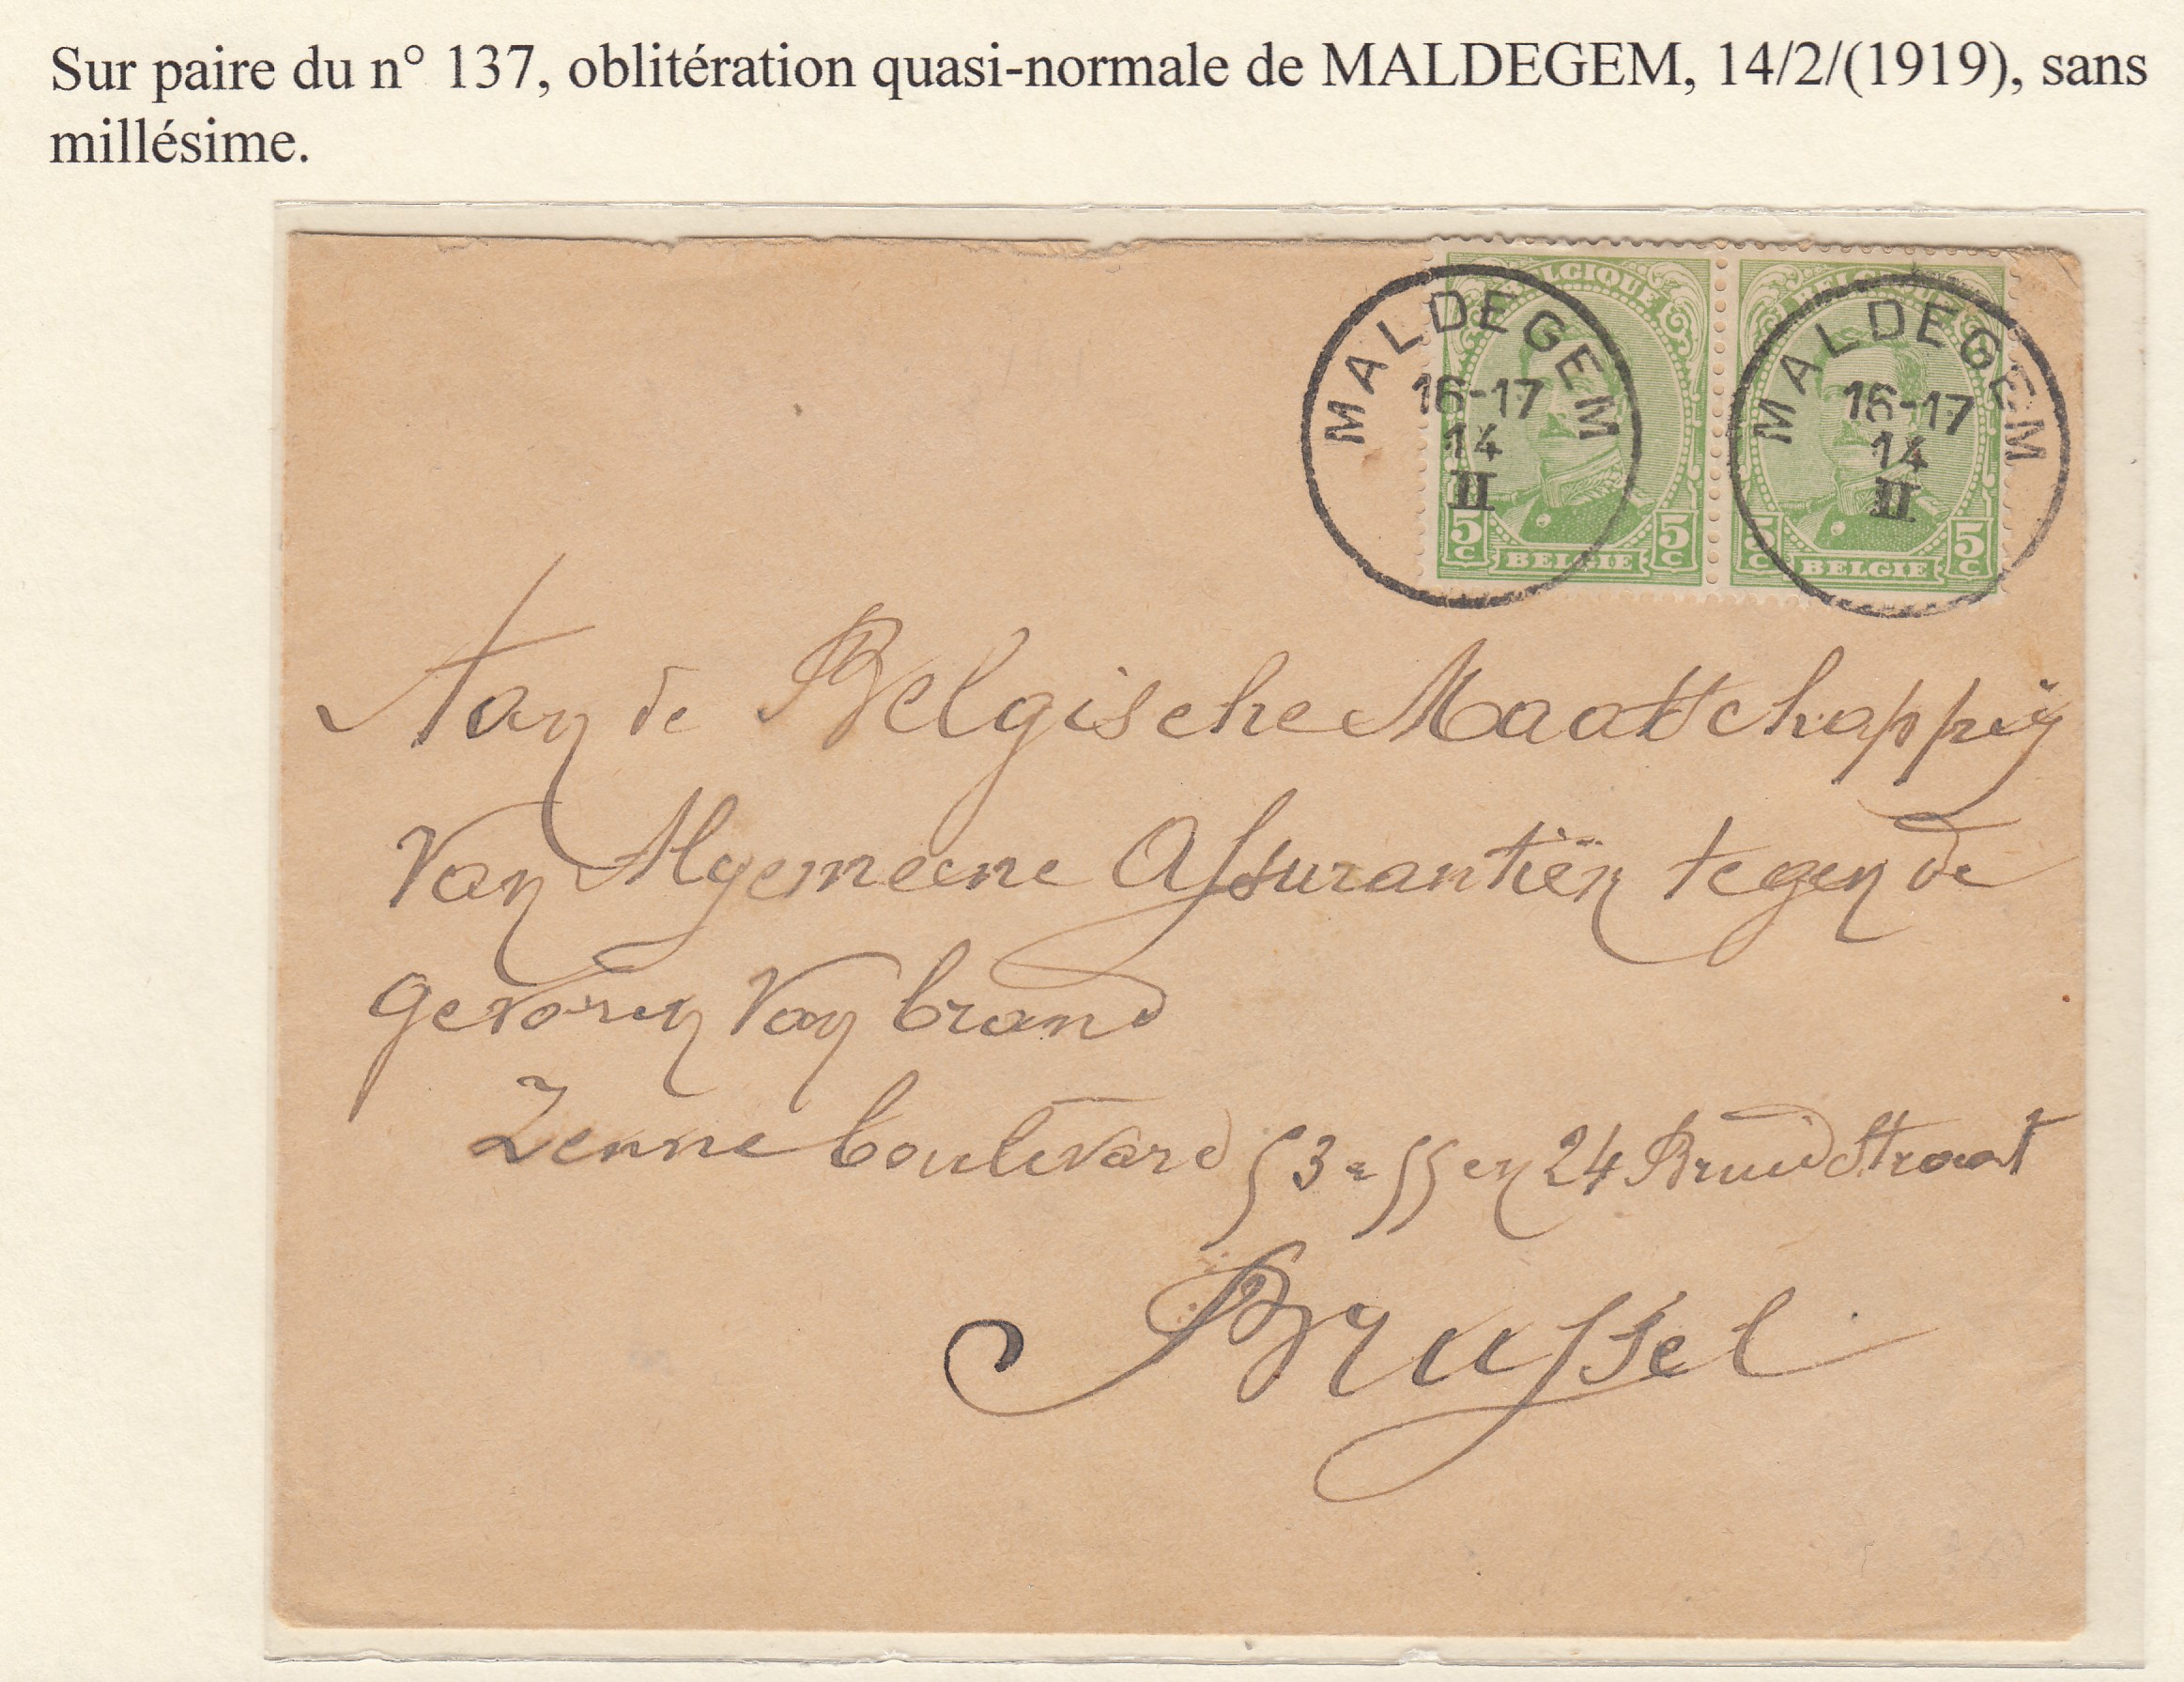 Sur paire du n° 137, oblitération quasi-normale de MALDEGEM, 14/2/(1919), sans
millésime.
BELGIQUE BELGIQUE
MALDEGEM MALDEGEM
16-17 16-17
14 14
II II
5 c 5 c 5 c 5 c
BELGIE BELGIE
Aan de Belgische Maatschappij
Van Algemeene Assurantiën tegen de
gevaren Van brand
Zenne boulevard 53 = 55 en 24 Bruid Straat
Brussel